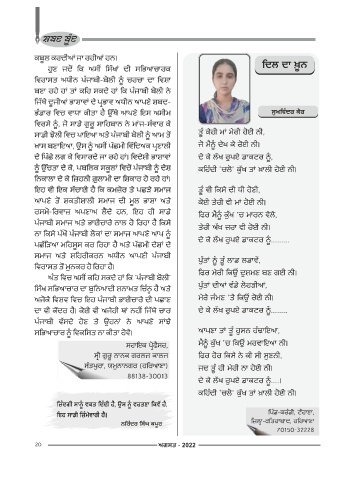 ਸ਼ਬਦ ਬੂੰਦ
ਕਬੂਲ ਕਰਦੀਆਂ ਜਾ ਰਹੀਆਂ ਹਨ।
ਹੁਣ ਜਦੋਂ ਕਿ ਅਸੀਂ ਸਿੱਖਾਂ ਦੀ ਸਭਿਆਚਾਰਕ
ਵਿਰਾਸਤ ਅਧੀਨ ਪੰਜਾਬੀ-ਬੋਲੀ ਨੂੰ ਚਰਚਾ ਦਾ ਵਿਸ਼ਾ
ਬਣਾ ਰਹੇ ਹਾਂ ਤਾਂ ਕਹਿ ਸਕਦੇ ਹਾਂ ਕਿ ਪੰਜਾਬੀ ਬੋਲੀ ਨੇ
ਜਿੱਥੇ ਦੂਜੀਆਂ ਭਾਸ਼ਾਵਾਂ ਦੇ ਪ੍ਰਭਾਵ ਅਧੀਨ ਆਪਣੇ ਸ਼ਬਦ-
ਭੰਡਾਰ ਵਿਚ ਵਾਧਾ ਕੀਤਾ ਹੈ ਉੱਥੇ ਆਪਣੇ ਇਸ ਅਸੀਮ
ਵਿਰਸੇ ਨੂੰ, ਜੋ ਸਾਡੇ ਗੁਰੂ ਸਾਹਿਬਾਨ ਨੇ ਮਾਂਜ-ਸੰਵਾਰ ਕੇ
ਸਾਡੀ ਝੋਲੀ ਵਿਚ ਪਾਇਆ ਅਤੇ ਪੰਜਾਬੀ ਬੋਲੀ ਨੂੰ ਆਮ ਤੋਂ
ਖਾਸ ਬਣਾਇਆ, ਉਸ ਨੂੰ ਅਸੀਂ ਪੱਛਮੀ ਵਿੱਦਿਅਕ ਪ੍ਰਣਾਲੀ
ਦੇ ਪਿੱਛੇ ਲਗ ਕੇ ਵਿਸਾਰਦੇ ਜਾ ਰਹੇ ਹਾਂ। ਵਿਦੇਸ਼ੀ ਭਾਸ਼ਾਵਾਂ
ਨੂੰ ਉੱਚਤਾ ਦੇ ਕੇ, ਪਬਲਿਕ ਸਕੂਲਾਂ ਵਿਚੋਂ ਪੰਜਾਬੀ ਨੂੰ ਦੇਸ਼
ਨਿਕਾਲਾ ਦੇ ਕੇ ਜ਼ਿਹਨੀ ਗੁਲਾਮੀ ਦਾ ਸ਼ਿਕਾਰ ਹੋ ਰਹੇ ਹਾਂ।
ਇਹ ਵੀ ਇਕ ਸੱਚਾਈ ਹੈ ਕਿ ਕਮਜ਼ੋਰ ਤੇ ਪਛੜੇ ਸਮਾਜ
ਆਪਣੇ ਤੋਂ ਸ਼ਕਤੀਸ਼ਾਲੀ ਸਮਾਜ ਦੀ ਮੂਲ ਭਾਸ਼ਾ ਅਤੇ
ਰਸਮੋ-ਰਿਵਾਜ਼ ਅਪਣਾਅ ਲੈਂਦੇ ਹਨ, ਇਹ ਹੀ ਸਾਡੇ
ਪੰਜਾਬੀ ਸਮਾਜ ਅਤੇ ਭਾਈਚਾਰੇ ਨਾਲ ਹੋ ਰਿਹਾ ਹੈ ਕਿਸੇ
ਨਾ ਕਿਸੇ ਪੱਖੋਂ ਪੰਜਾਬੀ ਲੋਕਾਂ ਦਾ ਸਮਾਜ ਆਪਣੇ ਆਪ ਨੂੰ
ਪਛੜਿਆ ਮਹਿਸੂਸ ਕਰ ਰਿਹਾ ਹੈ ਅਤੇ ਪੱਛਮੀ ਦੇਸ਼ਾਂ ਦੇ
ਸਮਾਜ ਅਤੇ ਸ਼ਹਿਰੀਕਰਨ ਅਧੀਨ ਅਪਣੀ ਪੰਜਾਬੀ
ਵਿਰਾਸਤ ਤੋਂ ਮੁਨਕਰ ਹੋ ਰਿਹਾ ਹੈ।
ਅੰਤ ਵਿਚ ਅਸੀਂ ਕਹਿ ਸਕਦੇ ਹਾਂ ਕਿ 'ਪੰਜਾਬੀ ਬੋਲੀ'
ਸਿੱਖ ਸਭਿਆਚਾਰ ਦਾ ਬੁਨਿਆਦੀ ਸ਼ਨਾਖਤੀ ਚਿੰਨ੍ਹ ਹੈ ਅਤੇ
ਅਜੋਕੇ ਵਿਸ਼ਵ ਵਿਚ ਇਹ ਪੰਜਾਬੀ ਭਾਈਚਾਰੇ ਦੀ ਪਛਾਣ
ਦਾ ਵੀ ਕੇਂਦਰ ਹੈ। ਕੋਈ ਵੀ ਅਜੇਹੀ ਥਾਂ ਨਹੀਂ ਜਿੱਥੇ ਚਾਰ
ਪੰਜਾਬੀ ਵੱਸਦੇ ਹੋਣ ਤੇ ਉਹਨਾਂ ਨੇ ਆਪਣੇ ਸਾਂਝੇ
ਸਭਿਆਚਾਰ ਨੂੰ ਵਿਕਸਿਤ ਨਾ ਕੀਤਾ ਹੋਵੇ।
ਸਹਾਇਕ ਪ੍ਰੋਫੈਸਰ,
ਸ੍ਰੀ ਗੁਰੂ ਨਾਨਕ ਗਰਲਜ਼ ਕਾਲਜ
ਸੰਤਪੁਰਾ, ਯਮੁਨਾਨਗਰ (ਹਰਿਆਣਾ)
88138-30013
ਜ਼ਿੰਦਗੀ ਸਾਨੂੰ ਵਕਤ ਦਿੰਦੀ ਹੈ, ਉਸ ਨੂੰ ਵਰਤਣਾ ਕਿਵੇਂ ਹੈ,
ਇਹ ਸਾਡੀ ਜ਼ਿੰਮੇਵਾਰੀ ਹੈ।
ਨਰਿੰਦਰ ਸਿੰਘ ਕਪੂਰ
ਦਿਲ ਦਾ ਖ਼ੂਨ
ਸੁਖਵਿੰਦਰ ਕੌਰ
ਤੂੰ ਕੇਹੀ ਮਾਂ ਮੇਰੀ ਹੋਈ ਨੀ,
ਜੇ ਮੈਨੂੰ ਦੇਖ ਕੇ ਰੋਈ ਨੀ।
ਦੇ ਕੇ ਲੱਖ ਰੁਪਏ ਡਾਕਟਰ ਨੂੰ,
ਕਹਿੰਦੀ 'ਚਲੋ' ਕੁੱਖ ਤਾਂ ਖ਼ਾਲੀ ਹੋਈ ਨੀ।
ਤੂੰ ਵੀ ਕਿਸੇ ਦੀ ਧੀ ਹੋਈ,
ਕੋਈ ਤੇਰੀ ਵੀ ਮਾਂ ਹੋਈ ਨੀ।
ਫਿਰ ਮੈਨੂੰ ਕੁੱਖ 'ਚ ਮਾਰਨ ਵੇਲੇ,
ਤੇਰੀ ਅੱਖ ਜ਼ਰਾ ਵੀ ਰੋਈ ਨੀ।
ਦੇ ਕੇ ਲੱਖ ਰੁਪਏ ਡਾਕਟਰ ਨੂੰ.........
ਪੁੱਤਾਂ ਨੂੰ ਤੂੰ ਲਾਡ ਲਡਾਵੇਂ,
ਫਿਰ ਮੇਰੀ ਕਿਉਂ ਦੁਸ਼ਮਣ ਬਣ ਗਈ ਨੀ।
ਪੁੱਤਾਂ ਦੀਆਂ ਵੰਡੇ ਲੋਹੜੀਆਂ,
ਮੇਰੇ ਜੰਮਣ 'ਤੇ ਕਿਉਂ ਰੋਈ ਨੀ।
ਦੇ ਕੇ ਲੱਖ ਰੁਪਏ ਡਾਕਟਰ ਨੂੰ........
ਆਪਣਾ ਤਾਂ ਤੂੰ ਹੁਸਨ ਹੰਢਾਇਆ,
ਮੈਨੂੰ ਕੁੱਖ 'ਚ ਕਿਉਂ ਮਰਵਾਇਆ ਨੀ।
ਫਿਰ ਹੋਰ ਕਿਸੇ ਨੇ ਕੀ ਸੀ ਸੁਣਨੀ,
ਜਦ ਤੂੰ ਹੀ ਮੇਰੀ ਨਾ ਹੋਈ ਨੀ।
ਦੇ ਕੇ ਲੱਖ ਰੁਪਏ ਡਾਕਟਰ ਨੂੰ....।
ਕਹਿੰਦੀ 'ਚਲੋ' ਕੁੱਖ ਤਾਂ ਖ਼ਾਲੀ ਹੋਈ ਨੀ।
ਪਿੰਡ-ਕਰੰਡੀ, ਟੋਹਾਣਾ,
ਜ਼ਿਲ੍ਹਾ-ਫਤਿਹਾਬਾਦ, ਹਰਿਆਣਾ
70150-32228
20
ਅਗਸਤ - 2022